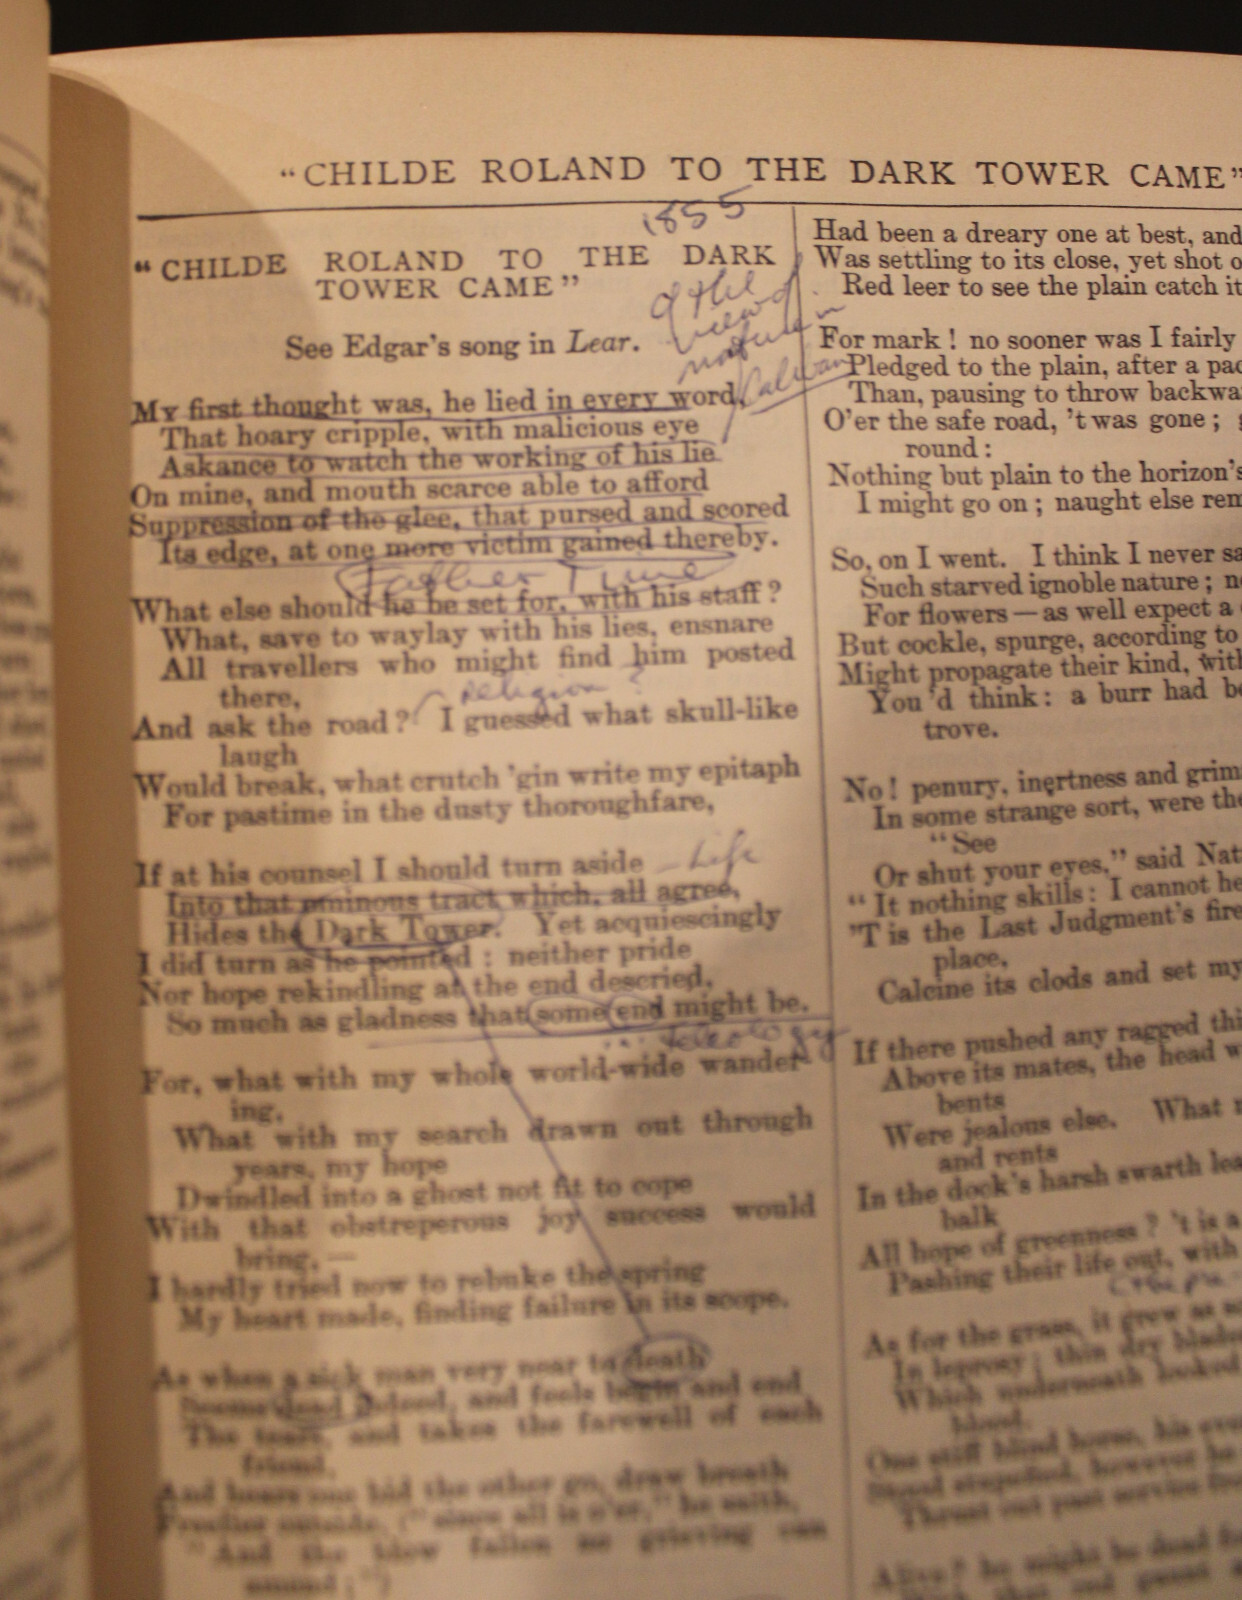 "CHILDE ROLAND TO THE DARK TOWER CAME"
1855
"CHILDE ROLAND TO THE DARK
TOWER CAME"
of the
view of
nature in
See Edgar's song in Lear.
My first thought was, he lied in every word,
That hoary cripple, with malicious eye
Askance to watch the working of his lie
On mine, and mouth scarce able to afford
Suppression of the glee, that pursed and scored
Its edge, at one more victim gained thereby.
Father Time
What else should he be set for, with his staff?
What, save to waylay with his lies, ensnare
All travellers who might find him posted
there,
religion?
And ask the road? I guessed what skull-like
laugh
Would break, what crutch 'gin write my epitaph
For pastime in the dusty thoroughfare,
If at his counsel I should turn aside
Life
Into that ominous tract which, all agree,
Hides the Dark Tower. Yet acquiescingly
I did turn as he pointed: neither pride
Nor hope rekindling at the end descried,
So much as gladness that some end might be.
teleology
For, what with my whole world-wide wander-
ing,
What with my search drawn out through
years, my hope
Dwindled into a ghost not fit to cope
With that obstreperous joy success would
bring, —
I hardly tried now to rebuke the spring
My heart made, finding failure in its scope.
As when a sick man very near to death
Seems dead indeed, and feels begin and end
The tears, and takes the farewell of each
friend,
And hears one bid the other go, draw breath
Freelier outside, ("since all is o'er," he saith,
"And the blow fallen no grieving can
amend;")
Had been a dreary one at best, and
Was settling to its close, yet shot
Red leer to see the plain catch it
For mark! no sooner was I fairly
Pledged to the plain, after a
Than, pausing to throw
O'er the safe road, 't was gone;
round:
Nothing but plain to the horizon's
I might go on; naught else
So, on I went. I think I never
Such starved ignoble nature;
For flowers — as well expect a
But cockle, spurge, according to
Might propagate their kind, with
You 'd think: a burr had
trove.
No! penury, inertness and
In some strange sort, were
"See
Or shut your eyes," said
"It nothing skills: I cannot
'T is the Last Judgment's fire
place,
Calcine its clods and set my
If there pushed any ragged
Above its mates, the head
bents
Were jealous else. What
and rents
In the dock's harsh swarth
balk
All hope of greenness? 't is a
Pashing their life out, with
As for the grass, it grew as
In leprosy; thin dry blades
Which underneath looked
blood.
One stiff blind horse, his
Stood stupefied, however he
Thrust out past service from
Alive? he might be dead for